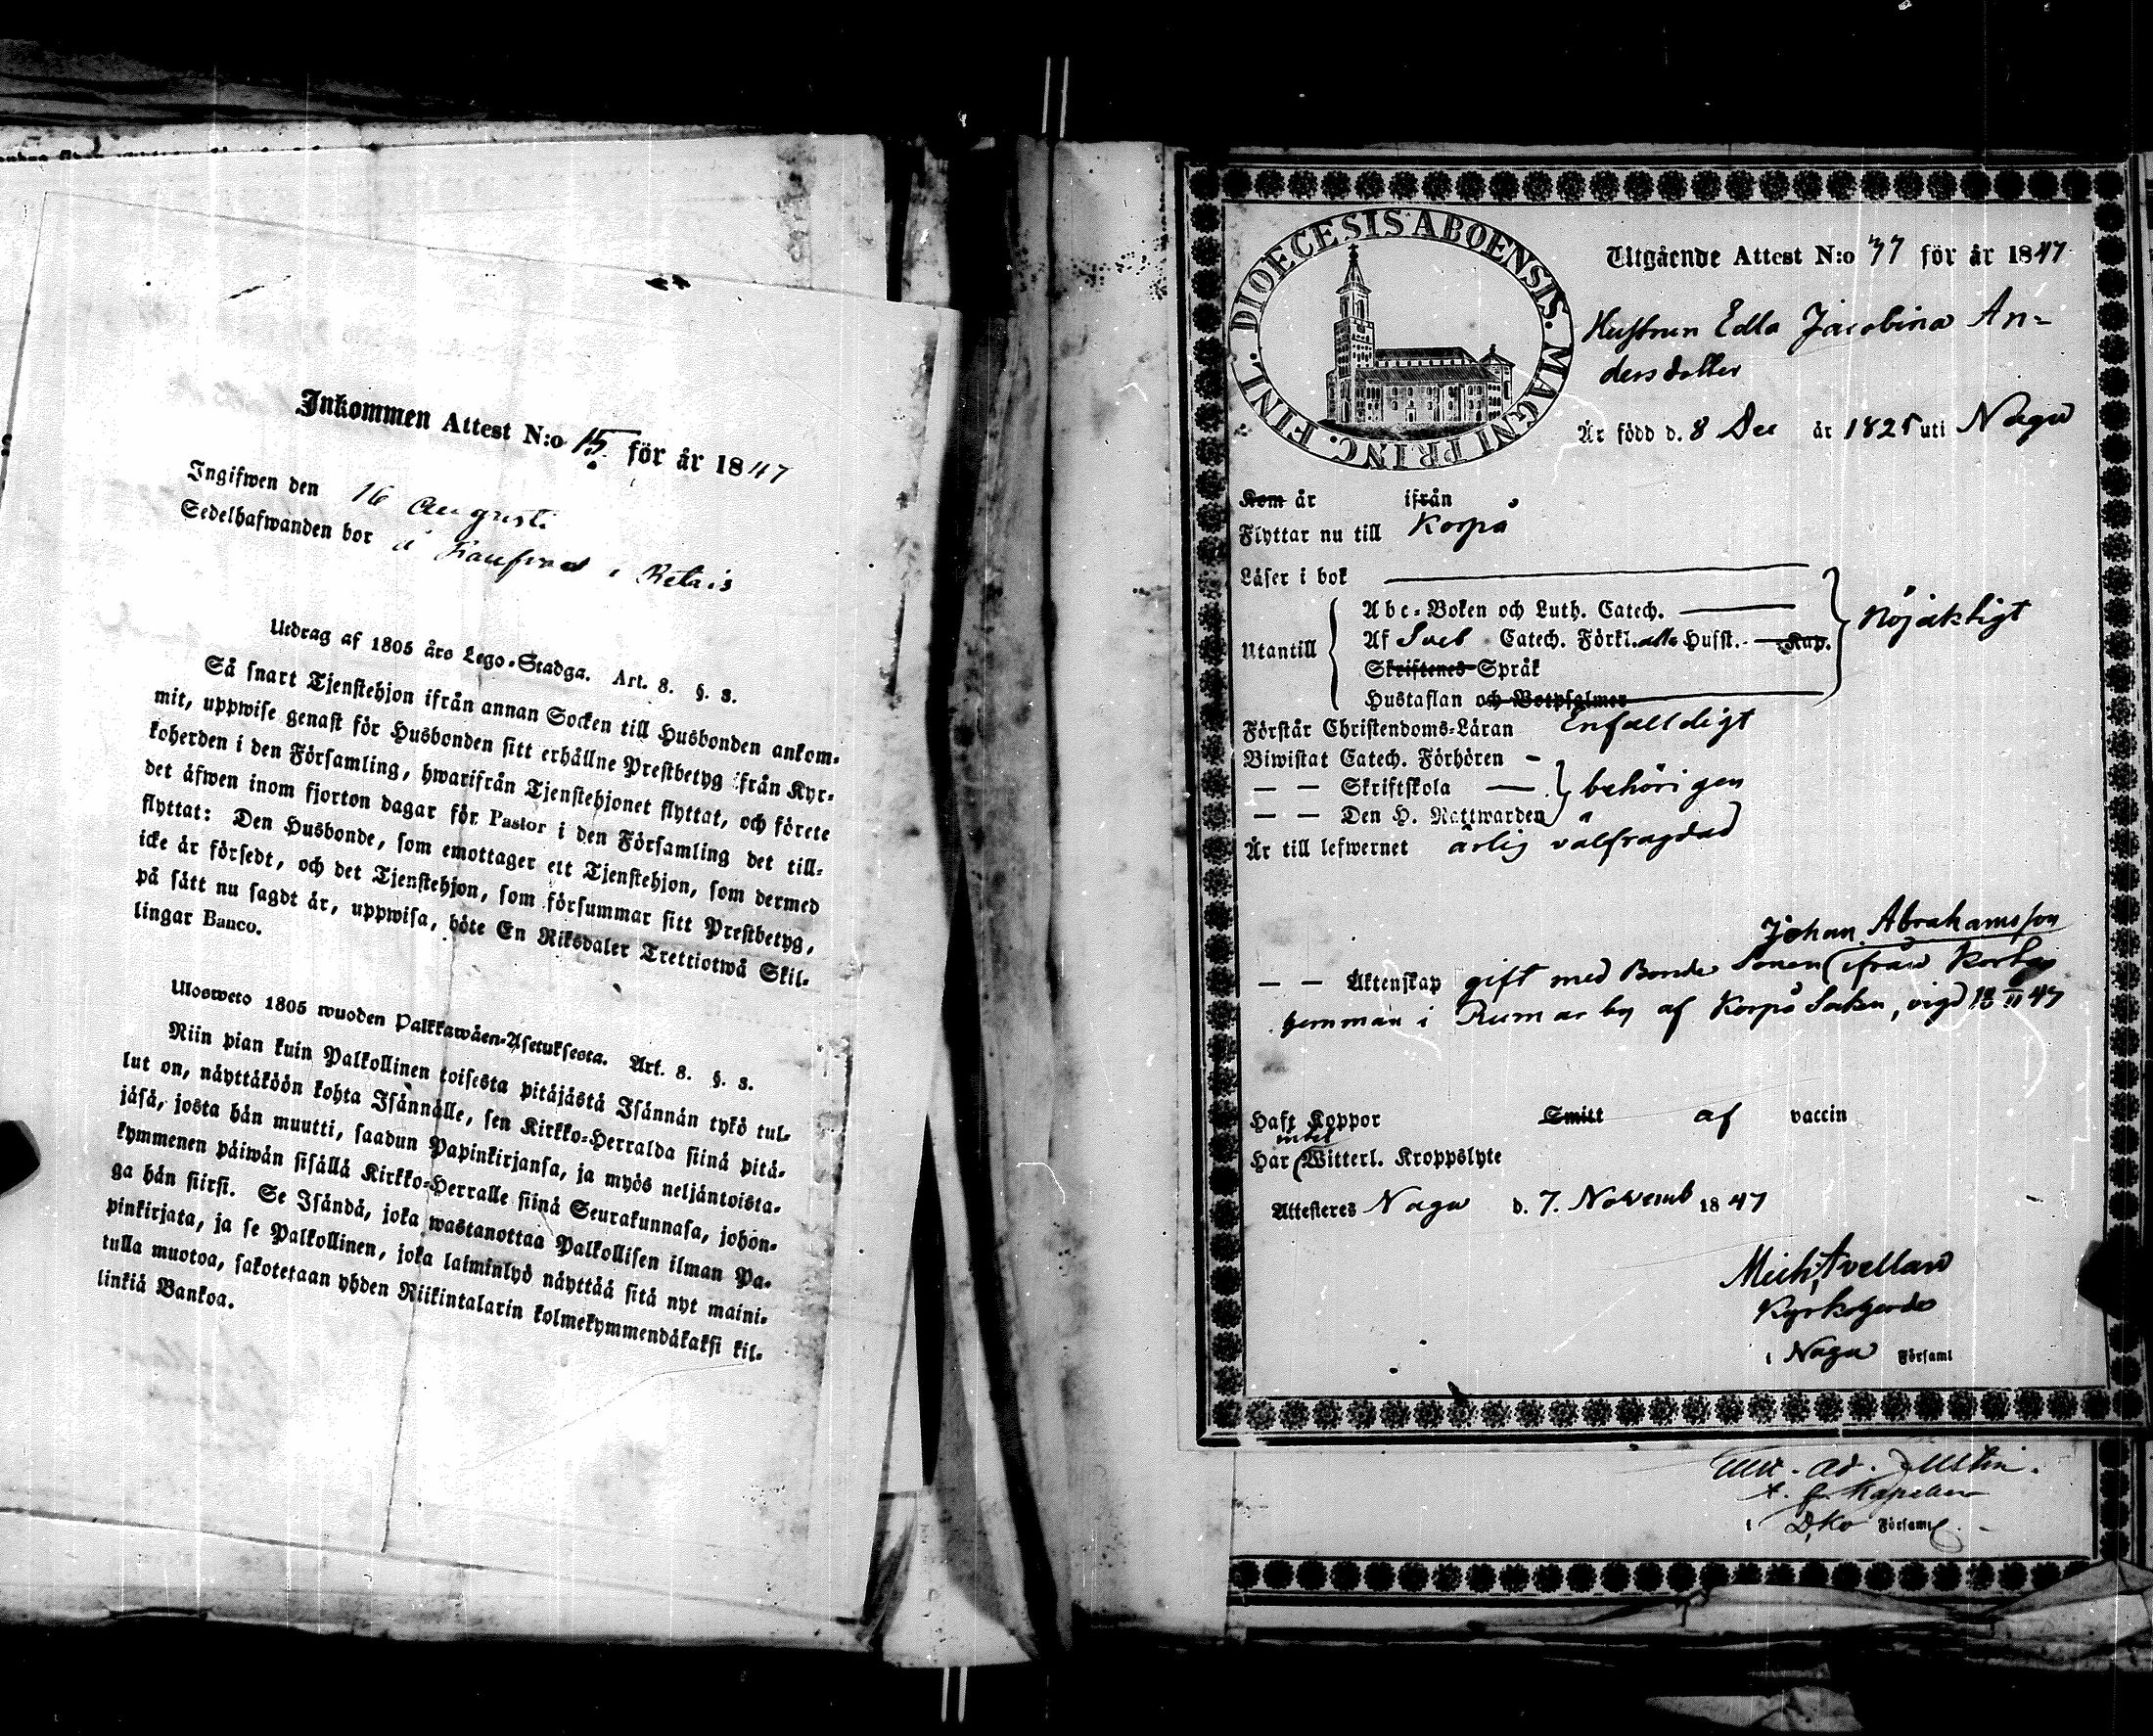 Inkommen Attest N:o 15. för år 1847
Ingifwen den 16 Augusti
Sedelhafwanden bor å i Retais
Utdrag af 1805 års Lego-Stadga. Art. 8. §. 3.
Så snart Tjenstehjon ifrån annan Socken till Husbonden ankom-
mit, uppwise genast för Husbonden sitt erhållne Prestbetyg ifrån Kyr-
koherden i den Församling, hwarifrån Tjenstehjonet flyttat, och förete
det äfwen inom fjorton dagar för Pastor i den Församling det till-
flyttat: Den Husbonde, som emottager ett Tjenstehjon, som dermed
icke är försedt, och det Tjenstehjon, som försummar sitt Prestbetyg,
på sätt nu sagdt är, uppwisa, böte En Riksdaler Trettiotwå Skil-
lingar Banco.
Ulosweto 1805 wuoden Palkkawäen-Asetuksesta. Art. 8. §. 3.
Niin pian kuin Palkollinen toisesta pitäjästä Isännän tykö tul-
lut on, näyttäköön kohta Isännälle, sen Kirkko-Herralda siinä pitä-
jäsä, josta hän muutti, saadun Papinkirjansa, ja myös neljäntoista-
kymmenen päiwän sisällä Kirkko-Herralle siinä Seurakunnasa, johon-
ga hän siirsi. Se Isändä, joka wastanottaa Palkollisen ilman Pa-
pinkirjata, ja se Palkollinen, joka laiminlyö näyttää sitä nyt maini-
tulla muotoa, sakotetaan yhden Riikintalarin kolmekymmendäkaksi kil-
linkiä Bankoa.
DIOECESIS ABOENSIS. MAGNI PRINC. FINL.
Utgående Attest N:o 77 för år 1847
Hustrun Edla Jacobina An=
dersdotter
Är född d. 8 Dec år 1825 uti Nagu
Kom år ifrån
Flyttar nu till Korpo
Läser i bok
Abc-Boken och Luth. Catech.
Utantill Af Sveb Catech. Förkl. alla Hufst. Kap.
Skriftenes Språk
Hustaflan och Botpsalmer
nöjaktligt
Förstår Christendoms-Läran Enfalldigt
Biwistat Catech. Förhören
— — Skriftskola — behörigen
— — Den H. Nattwarden
Är till lefwernet ärlig välfrägdad
Johan Abrahamsson
— — Äktenskap gift med Bonde Sonen ifrån Korlax
hemman i Rumar by af Korpo Sokn, vigd
Haft Koppor Smitt af vaccin
intet
Har Witterl. Kroppslyte
Attesteres Nagu d. 7. Novemb 1847
Mich. Avellan
Kyrkoherde
i Nagu Församl
Ad.
Kapellan
i Församl